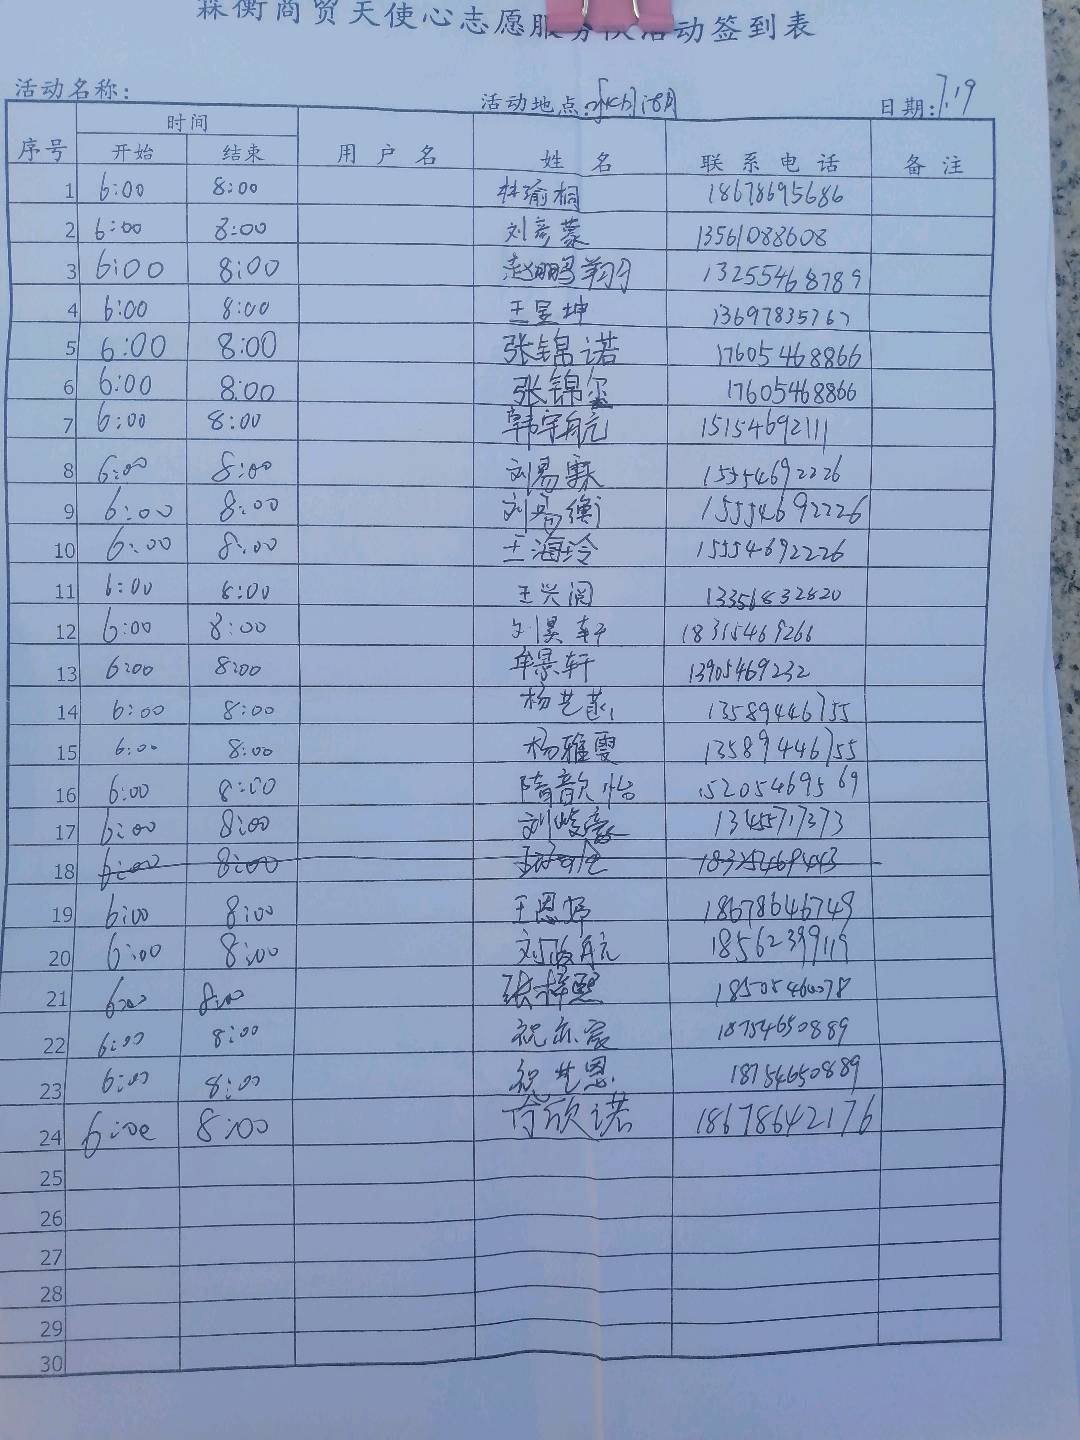 霖衡商贸天使心志愿服务队活动签到表
活动名称: 活动地点: 日期: 7.19
序号 时间 用户名 姓名 联系电话 备注
开始 结束
1 6:00 8:00 林瑜桐 18678695686
2 6:00 8:00 刘彦蒙 13561088608
3 6:00 8:00 赵鹏翔 13255468789
4 6:00 8:00 王昱坤 13697835767
5 6:00 8:00 张锦诺 17605468866
6 6:00 8:00 张锦尔 17605468866
7 6:00 8:00 韩宇航 15154692111
8 6:00 8:00 刘易霖 15554692226
9 6:00 8:00 刘易衡 15554692226
10 6:00 8:00 王海玲 15554692226
11 6:00 8:00 王兴阔 13356832820
12 6:00 8:00 刘昊轩 18315469266
13 6:00 8:00 牟景轩 13905469232
14 6:00 8:00 杨艺 13589446755
15 6:00 8:00 杨雅雯 13589446755
16 6:00 8:00 隋歆怡 15205469569
17 6:00 8:00 刘峻豪 13455717373
18 6:00 8:00
19 6:00 8:00 王恩婷 18678646749
20 6:00 8:00 刘政航 18562399119
21 6:00 8:00 张梓熙 18505460078
22 6:00 8:00 祝亦宸 18754650889
23 6:00 8:00 祝艺恩 18754650889
24 6:00 8:00 欣诺 18678642176
25
26
27
28
29
30